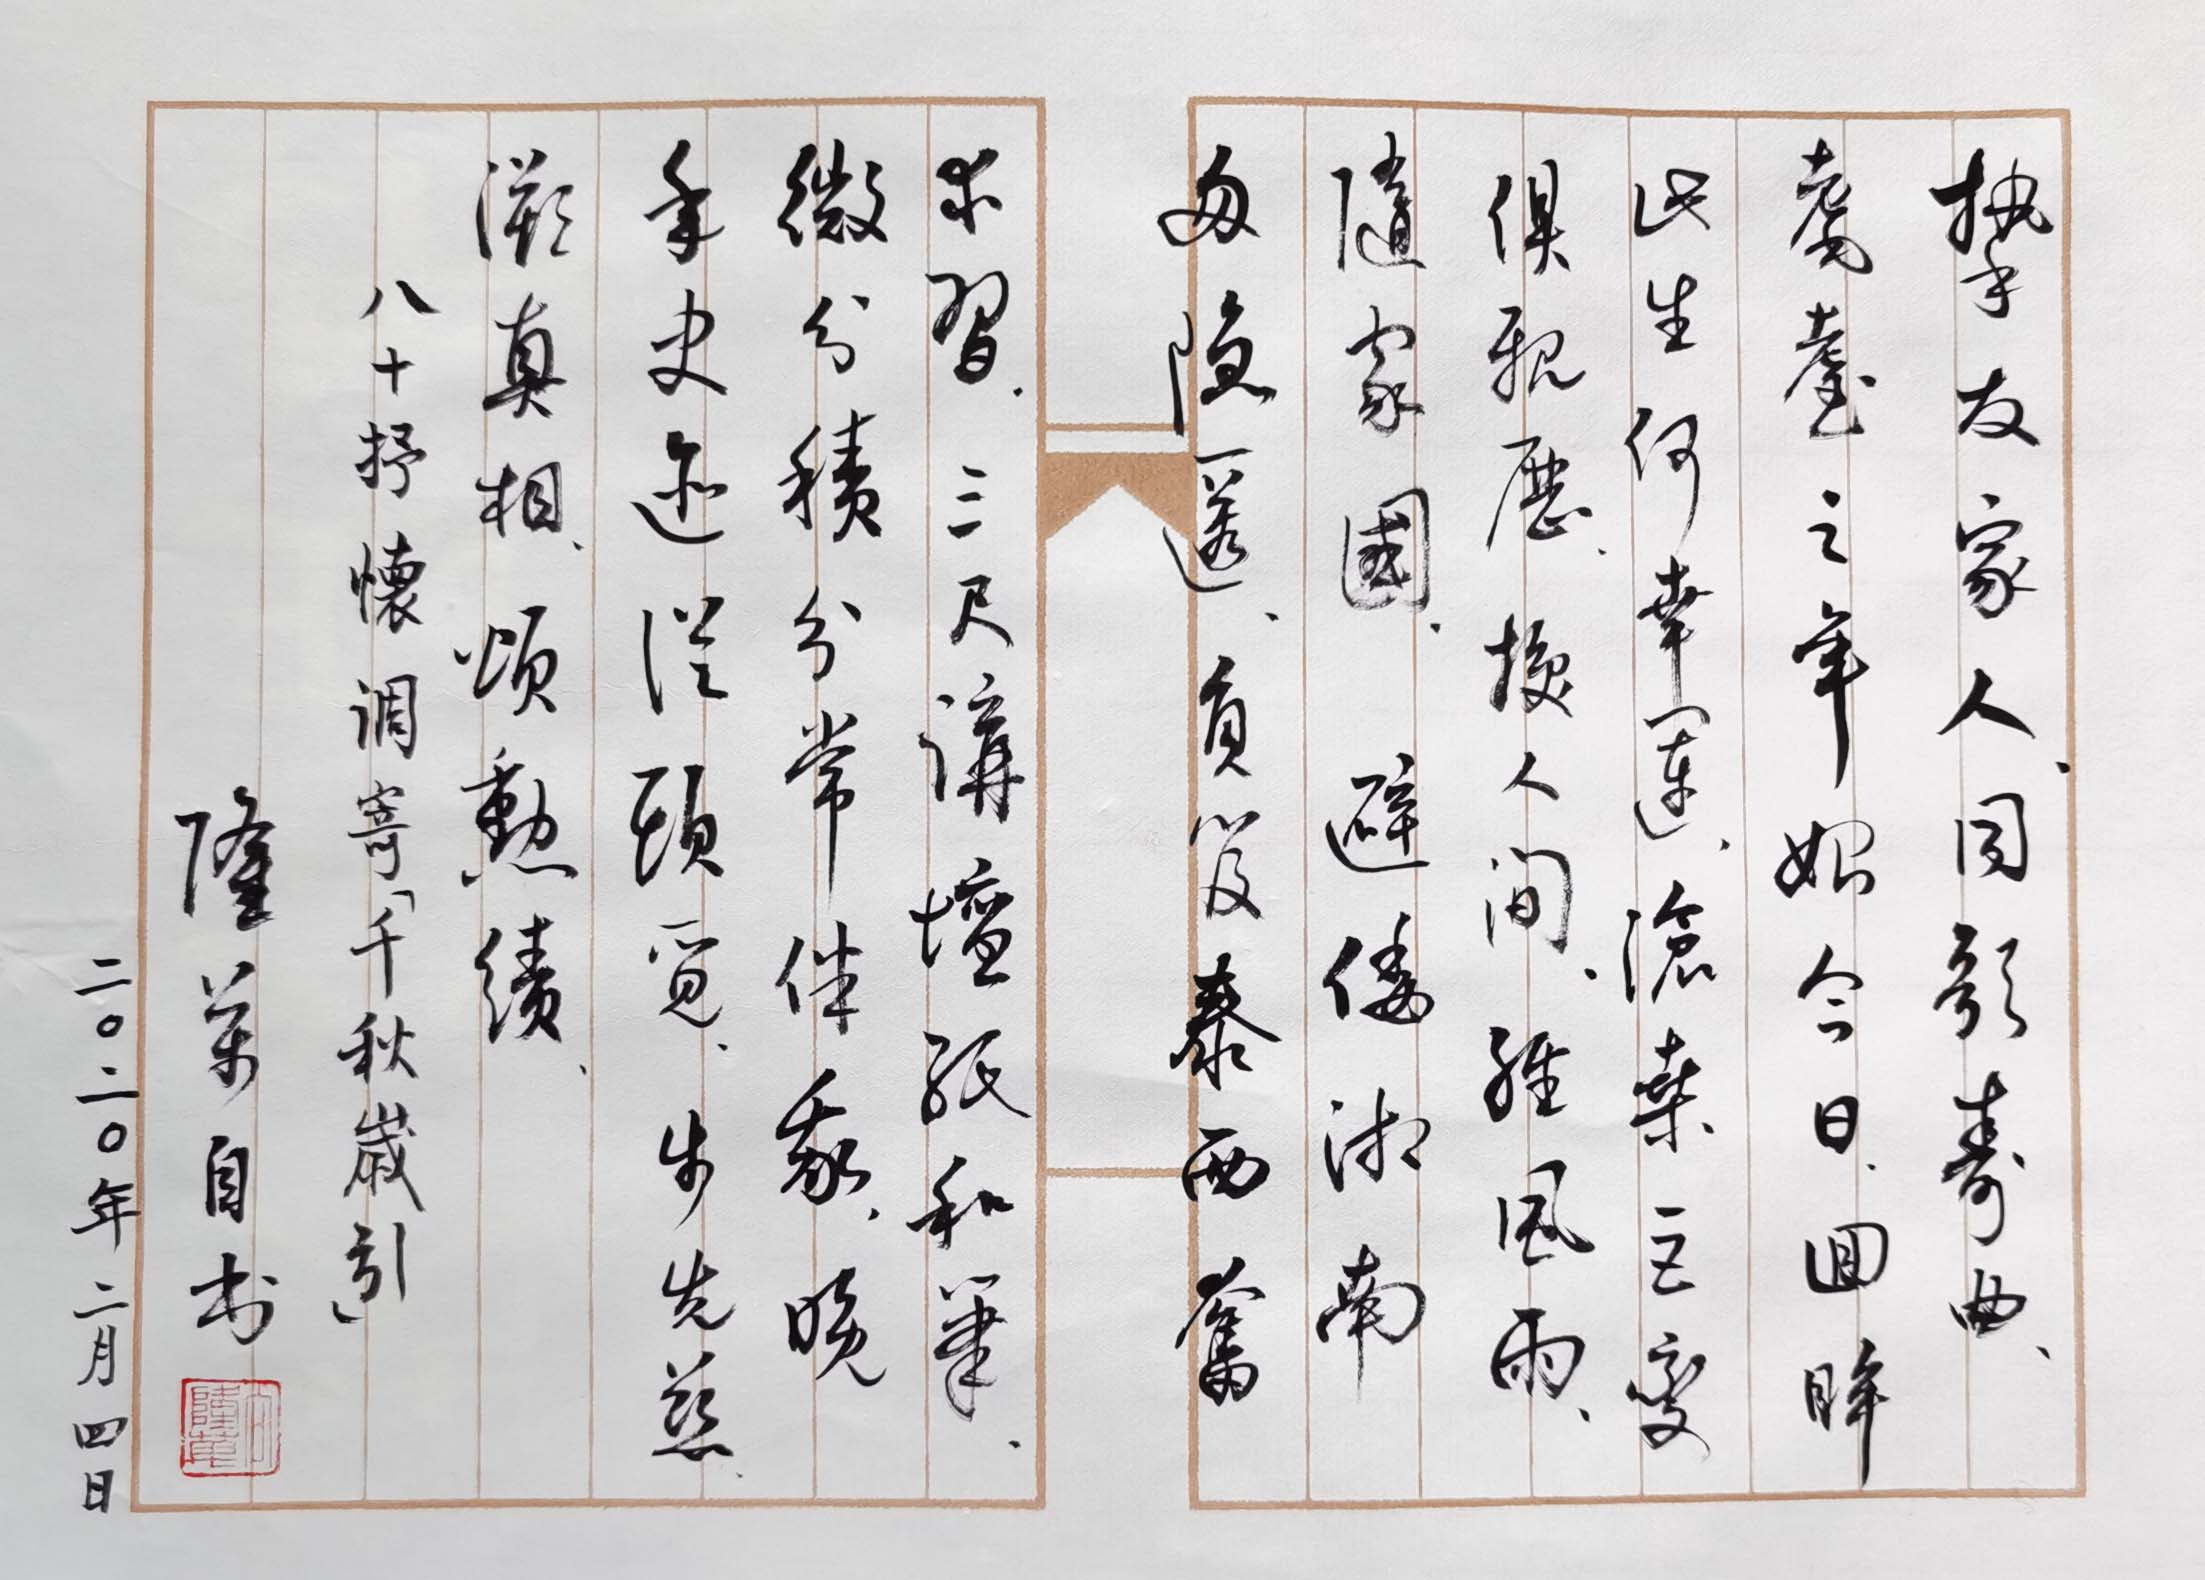 摯友家人、同歌壽曲、
耄耋之年始今日、回眸
此生何幸運、滄桑巨變
俱親歷、換人間、經風雨、
隨家國、避倭湘南
隐匿、負笈泰西奮
求習、三尺講壇紙和筆、
微分積分常伴我、晚
年史迹從頭覓、步先慈、
溯真相、頌勳績、
八十抒懷調寄「千秋歲引」
隆自书
二〇二〇年二月四日